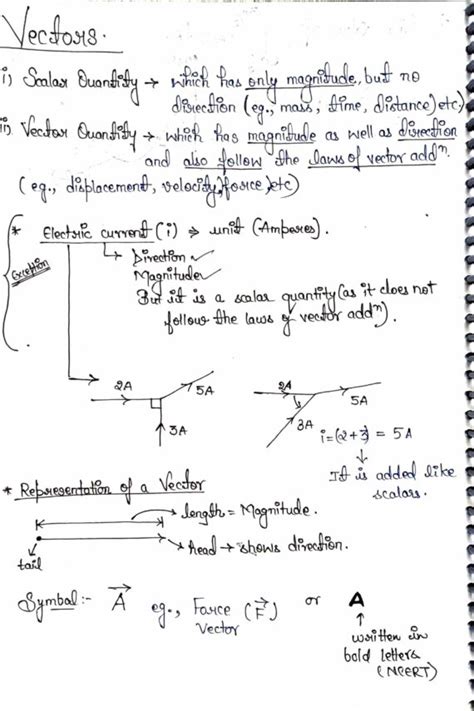 Vectors.
i) Scalar Quantity → which has only magnitude, but no
direction (eg., mass, time, distance) etc)
ii) Vector Quantity → which has magnitude as well as direction
and also follow the laws of vector addⁿ.
(eg., displacement, velocity, force, etc)
* Electric current (i) → unit (Amperes).
Exception
Direction ✓
Magnitude ✓
But it is a scalar quantity (as it does not
follow the laws of vector addⁿ).
2A 5A 2A 5A
3A 3A i=(2+3) = 5A
It is added like
scalars.
* Representation of a Vector
length = Magnitude.
head → shows direction.
tail
Symbol:- A⃗ eg., Force (F⃗) or A
Vector
written in
bold letters
(NCERT)